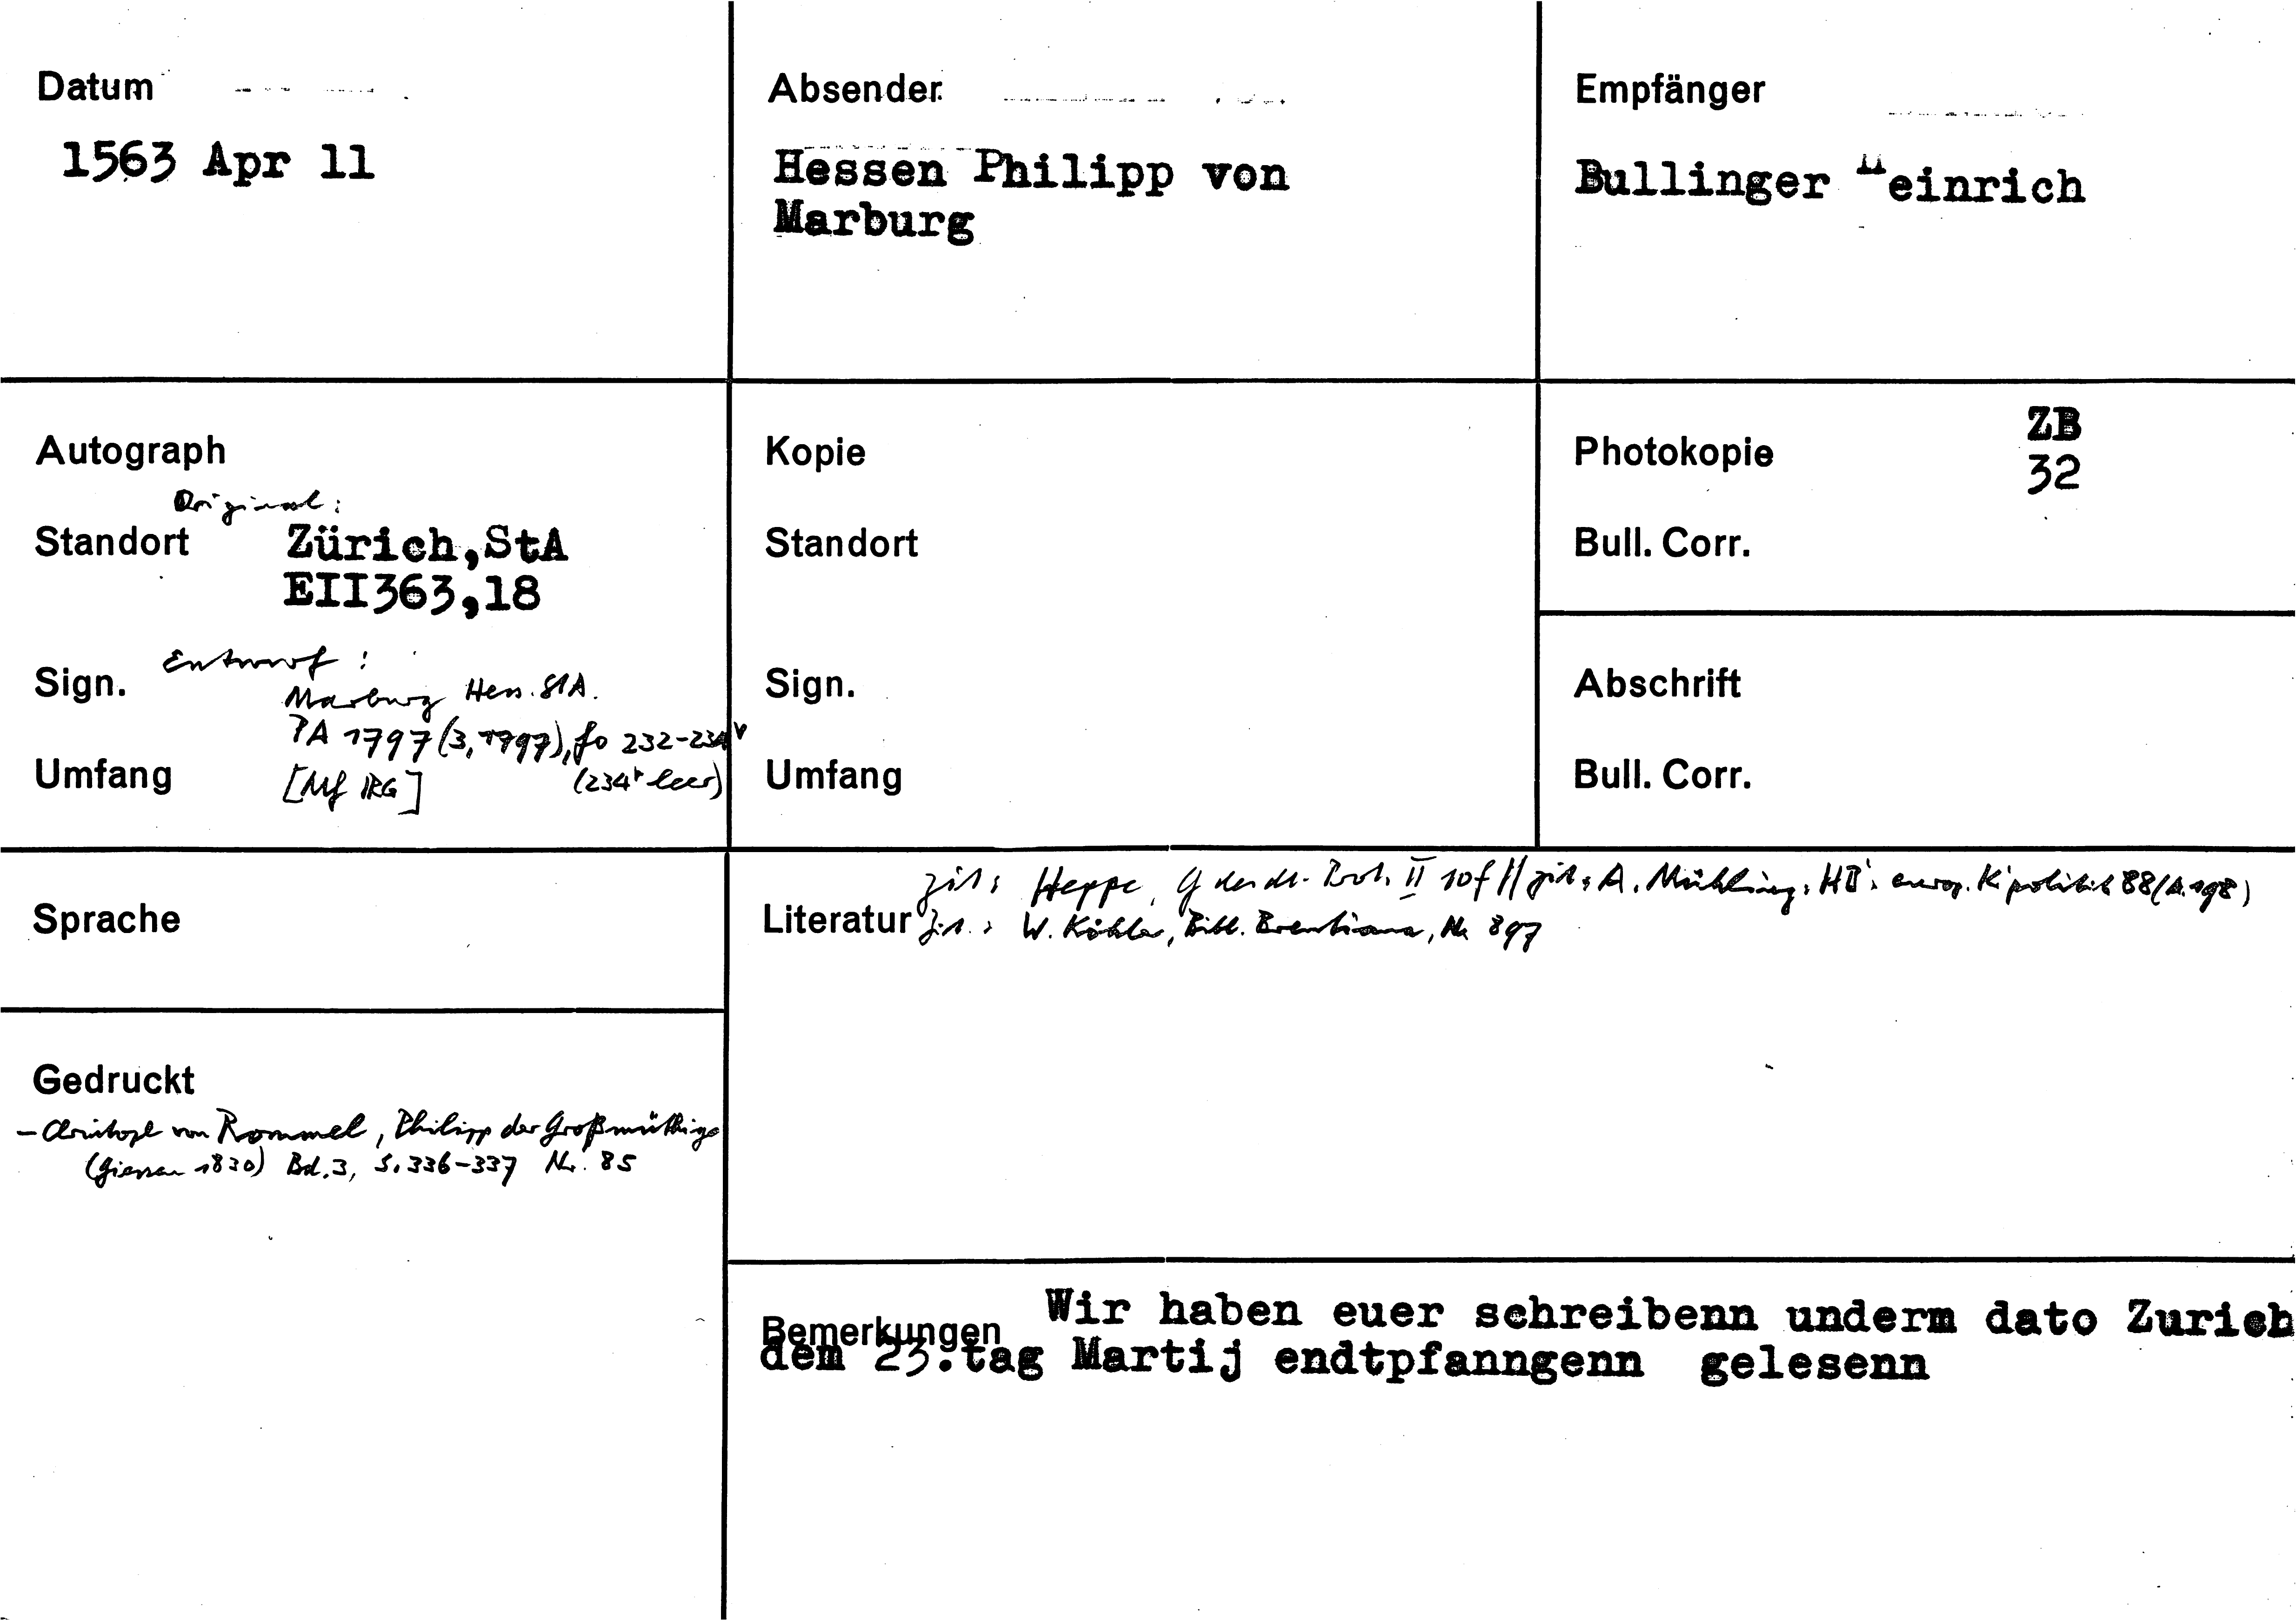 Datum
1563 Apr 11
Absender
Hessen Philipp von
Marburg
Empfänger
Bullinger Heinrich
Autograph
Original:
Standort Zürich,StA
EII363,18
Sign. Entwurf:
Marburg Hess. StA.
PA 1797 (3,1797), fo 232-234v
Umfang [Mf IRG] (234r leer)
Kopie
Standort
Sign.
Umfang
Photokopie ZB
32
Bull. Corr.
Abschrift
Bull. Corr.
Sprache
Literatur
zit: Heppe, G des dt. Prot. II 10f // zit: A. Mühling, HB's europ. K'politik 88 (A. 198)
zit.: W. Köhler, Bibl. Brentiana, Nr 897
Gedruckt
- Christoph von Rommel, Philipp der Großmüthige
(Giessen 1830) Bd. 3, S. 336-337 Nr. 85
Bemerkungen Wir haben euer schreibenn underm dato Zurich
dem 23.tag Martij endtpfanngenn gelesenn